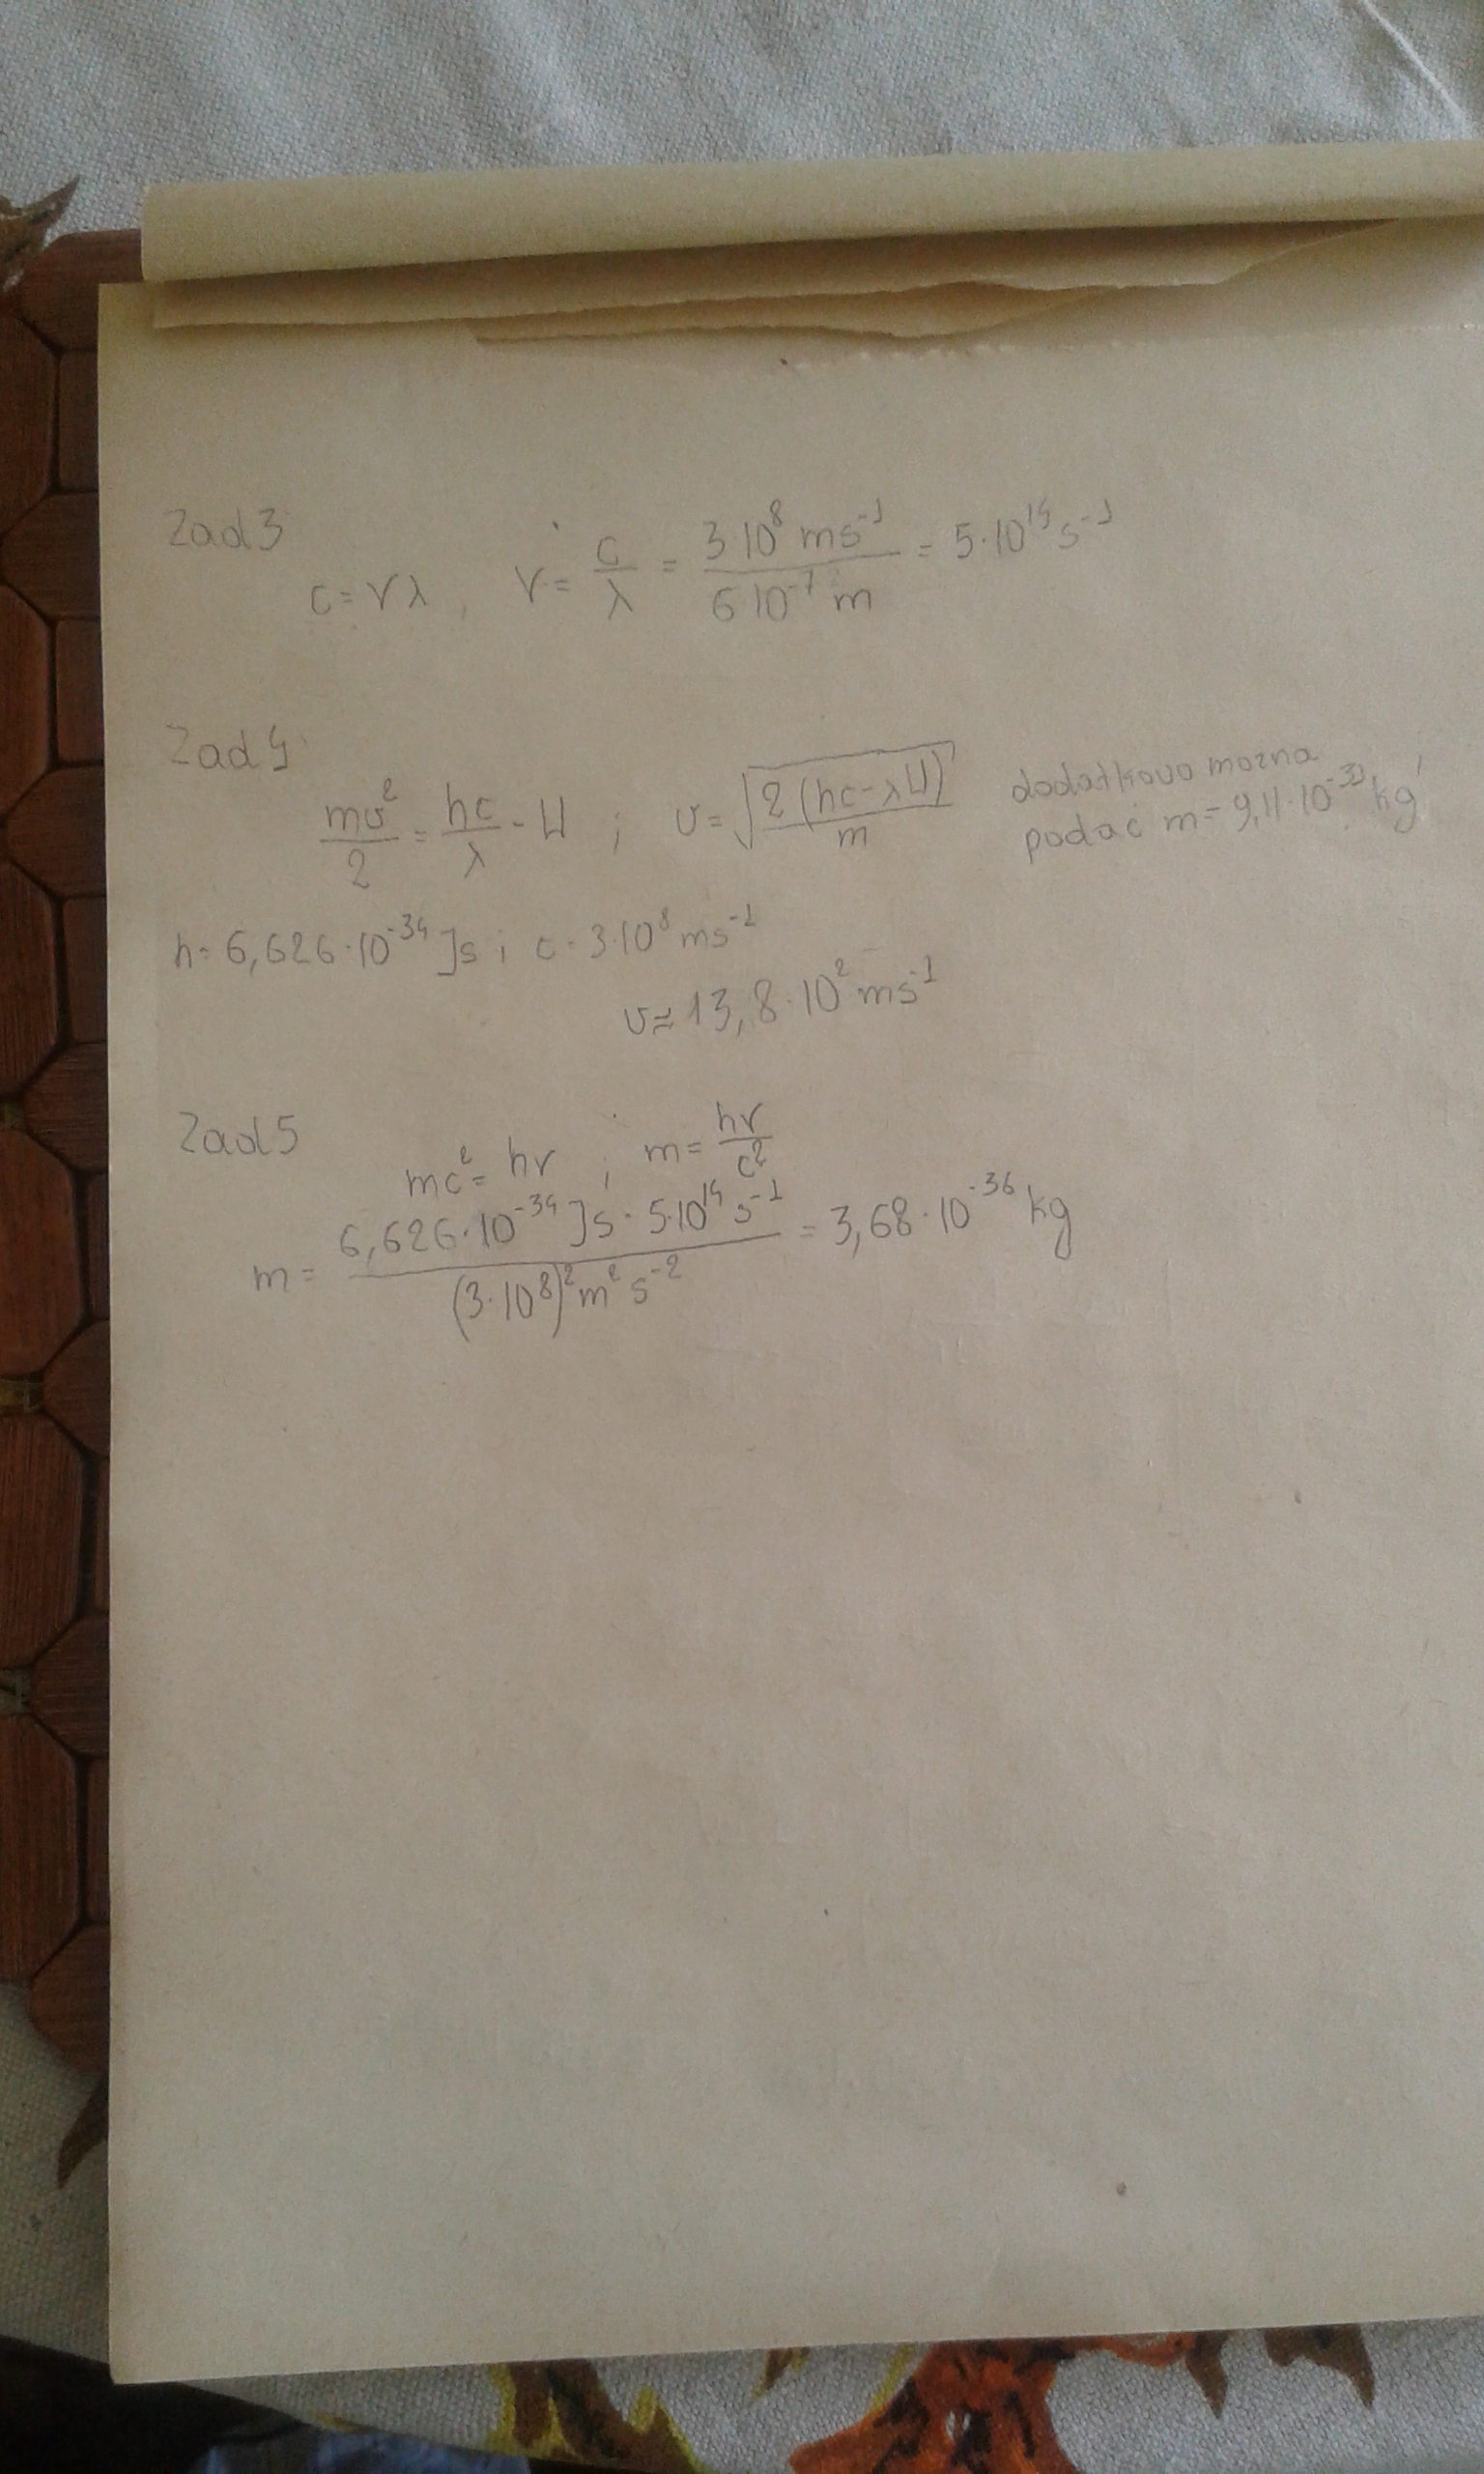 Zad 3
c = νλ, ν = c/λ = 3·10⁸ ms⁻¹ / 6·10⁻⁷ m = 5·10¹⁴ s⁻¹
Zad 4
mv²/2 = hc/λ - W ; v = √(2(hc-λW)/m) dodatkowo mozna
podać m = 9,11·10⁻³¹ kg
h = 6,626·10⁻³⁴ Js ; c = 3·10⁸ ms⁻¹
v ≈ 13,8·10² ms⁻¹
Zad 5
mc² = hν ; m = hν/c²
m = 6,626·10⁻³⁴ Js · 5·10¹⁴ s⁻¹ / (3·10⁸)² m² s⁻² = 3,68·10⁻³⁶ kg